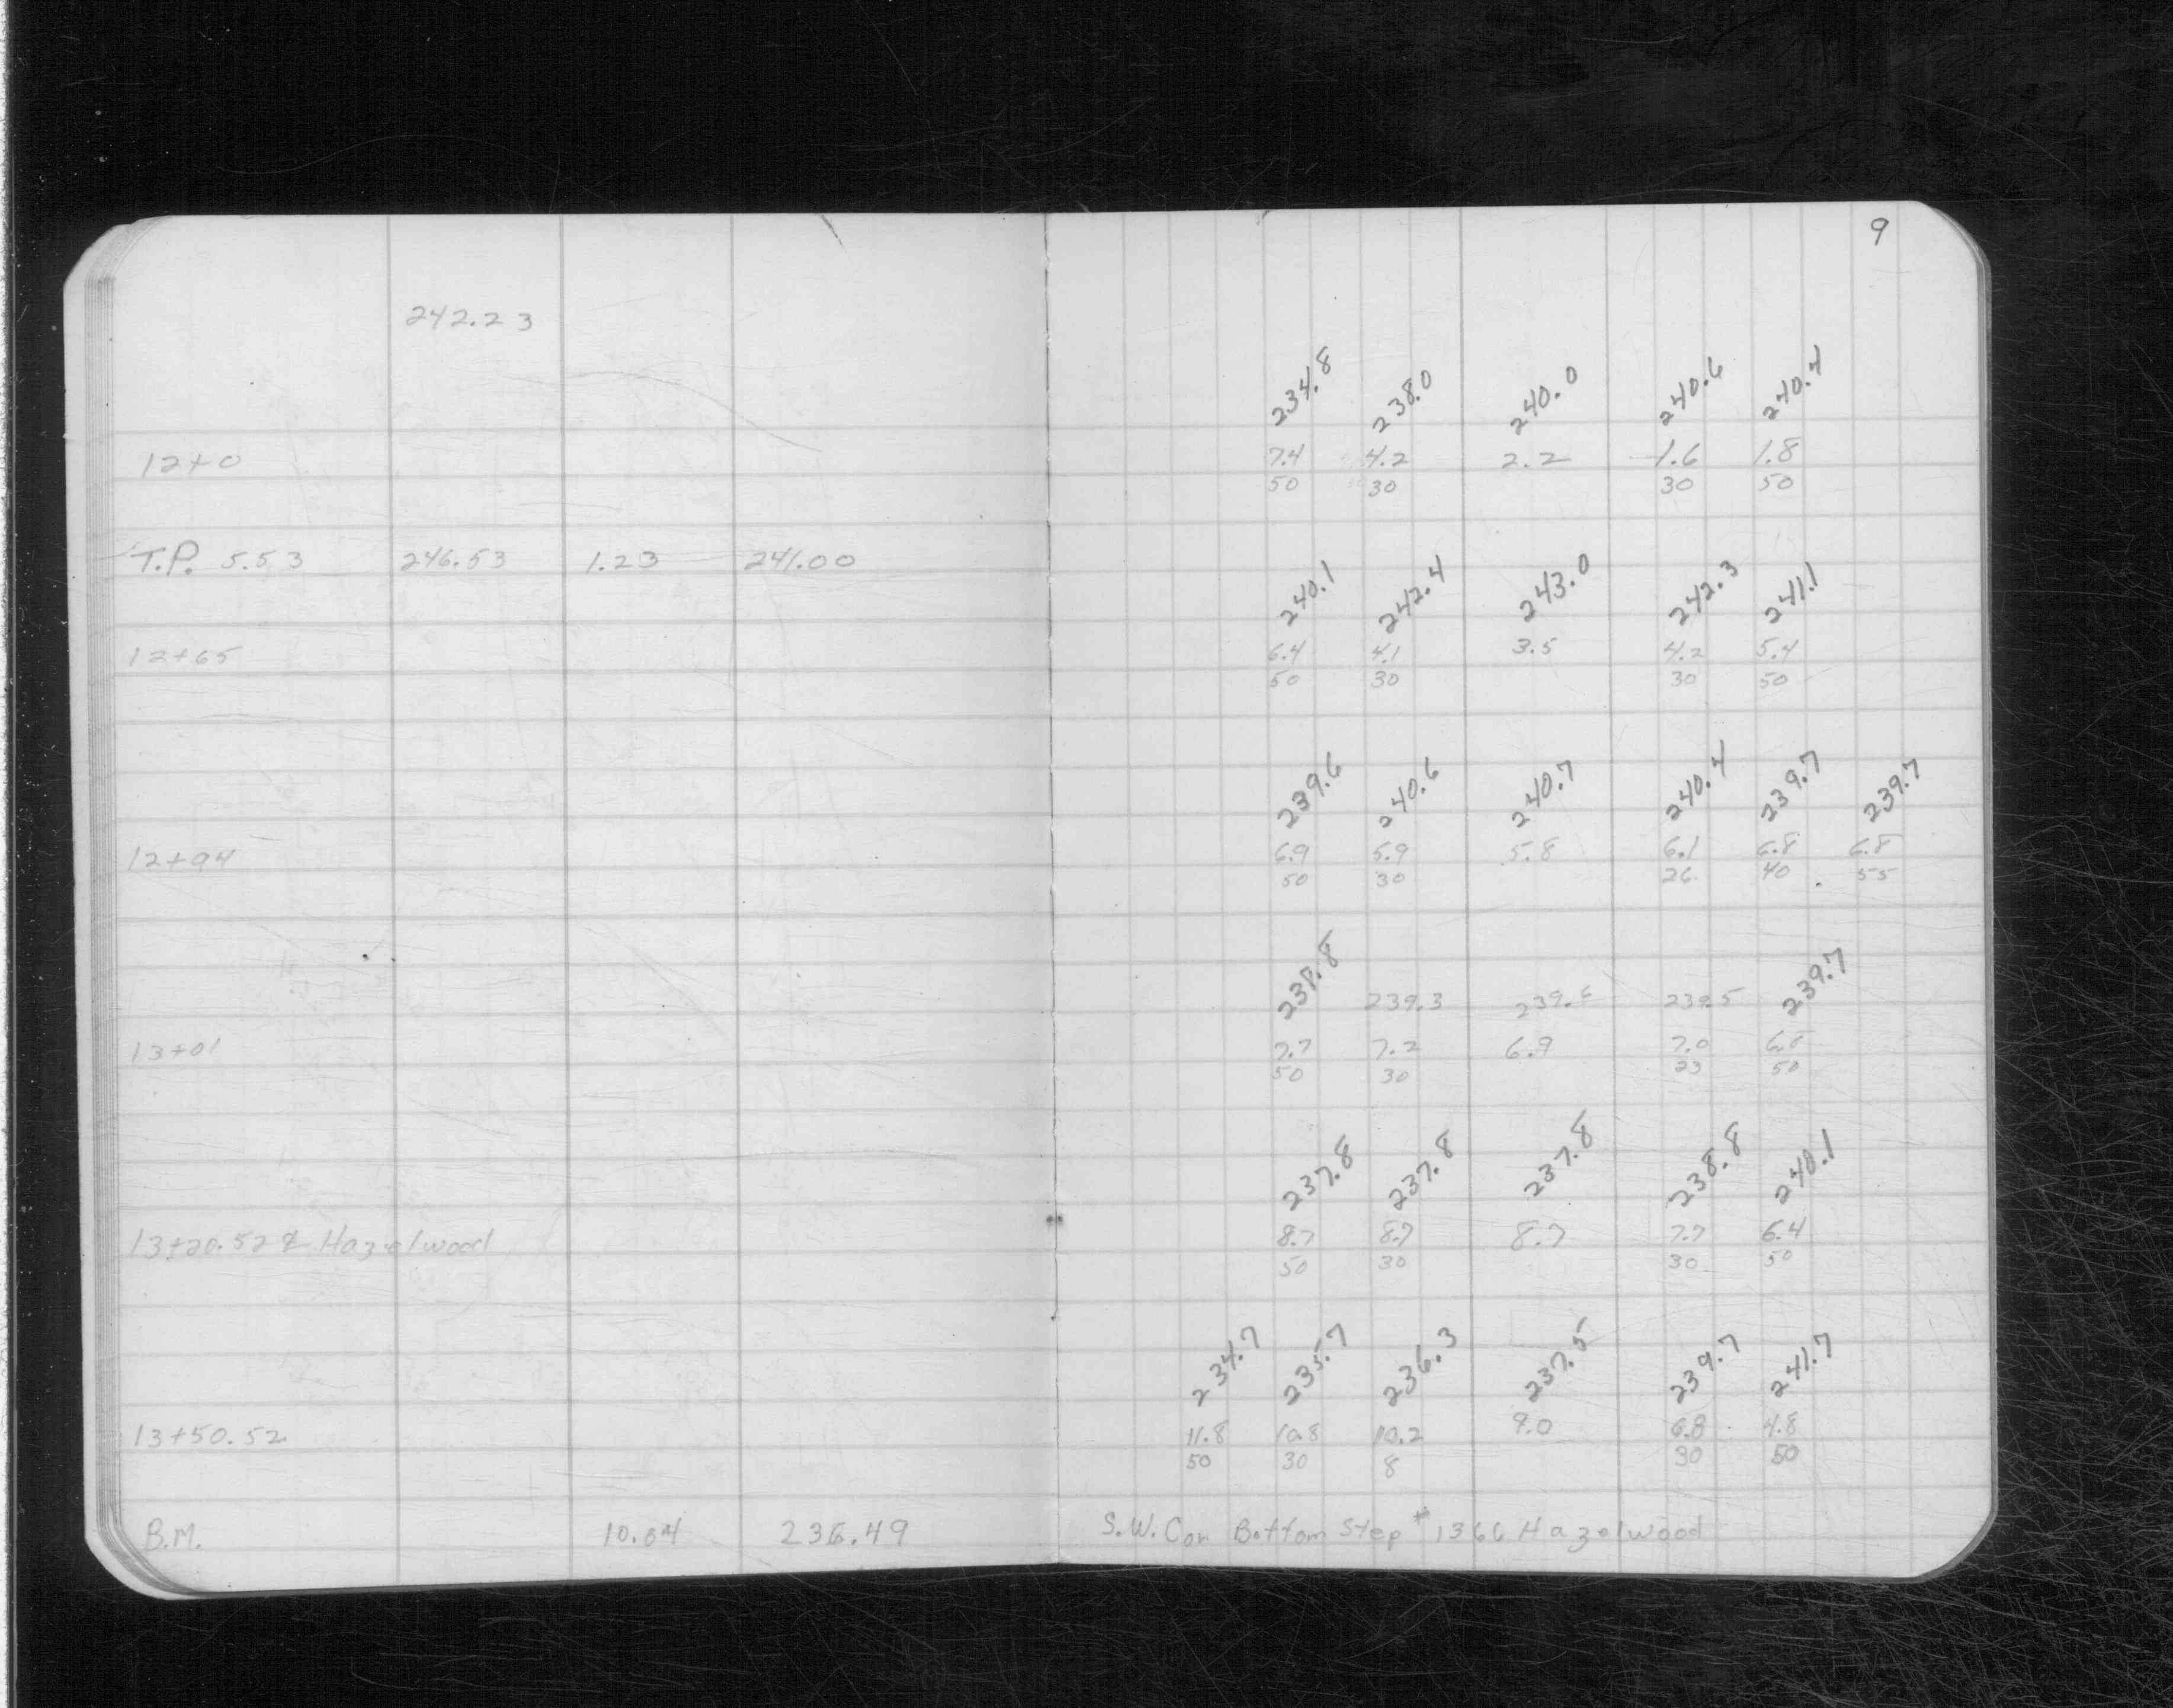 9
242.23
234.8 238.0 240.0 240.6 240.4
12+0 7.4 4.2 2.2 1.6 1.8
50 30 30 50
T.P. 5.53 246.53 1.23 241.00
240.1 242.4 243.0 242.3 241.1
12+65 6.4 4.1 3.5 4.2 5.4
50 30 30 50
239.6 240.6 240.7 240.4 239.7 239.7
12+94 6.9 5.9 5.8 6.1 6.8 6.8
50 30 26 40 55
239.3 239.5 239.7
13+01 7.7 7.2 6.9 7.0 6.8
50 30 23 50
237.8 237.8 237.8 238.8 240.1
13+20.52 ℄ Hazelwood 8.7 8.7 8.7 7.7 6.4
50 30 30 50
234.7 235.7 236.3 237.5 239.7 241.7
13+50.52 11.8 10.8 10.2 9.0 6.8 4.8
50 30 8 30 50
B.M. 10.04 236.49 S.W. Cor Bottom Step #1366 Hazelwood